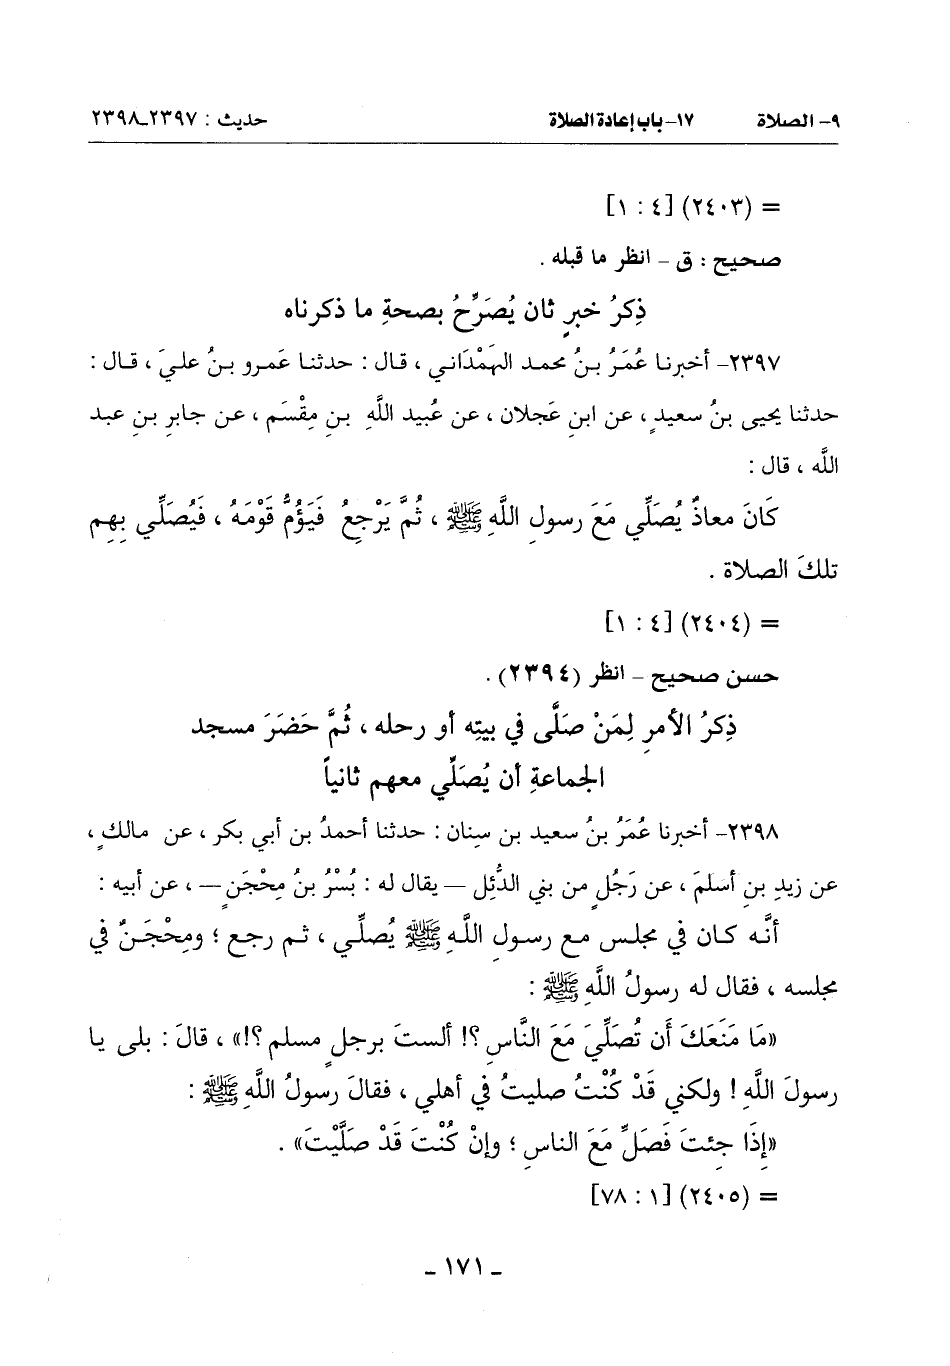 ٩- الصلاة ١٧- باب إعادة الصلاة حديث : ٢٣٩٧-٢٣٩٨
= (٢٤٠٣) [٤ : ١]
صحيح : ق - انظر ما قبله .
ذِكرُ خبرٍ ثان يُصَرِّحُ بصحةِ ما ذكرناه
٢٣٩٧- أخبرنا عُمَرُ بنُ محمد الهَمْدَاني ، قال : حدثنا عَمرو بنُ عليَ ، قال :
حدثنا يحيى بنُ سعيدٍ ، عن ابنِ عَجلان ، عن عُبيد اللَّهِ بنِ مِقْسَم ، عن جابرِ بنِ عبد
اللَّه ، قال :
كَانَ معاذٌ يُصَلِّي مَعَ رسولِ اللَّهِ ﷺ ، ثُمَّ يَرْجِعُ فَيَؤُمُّ قَوْمَهُ ، فَيُصَلِّي بِهِم
تلكَ الصلاة .
= (٢٤٠٤) [٤ : ١]
حسن صحيح - انظر (٢٣٩٤) .
ذِكرُ الأمرِ لِمَنْ صَلَّى في بيتِه أو رحله ، ثُمَّ حَضَرَ مسجد
الجماعةِ أن يُصَلِّي معهم ثانياً
٢٣٩٨- أخبرنا عُمَرُ بنُ سعيد بن سِنان : حدثنا أحمدُ بن أبي بكر ، عن مالكٍ ،
عن زيدِ بنِ أسلمَ ، عن رَجُلٍ من بني الدُّئِل — يقال له : بُسْرُ بنُ مِحْجَنٍ — ، عن أبيه :
أنَّه كان في مجلس مع رسولِ اللَّهِ ﷺ يُصلِّي ، ثم رجع ؛ ومِحْجَنٌ في
مجلسه ، فقال له رسولُ اللَّهِ ﷺ :
«مَا مَنَعَكَ أَن تُصَلِّيَ مَعَ النَّاسِ ؟! ألستَ برجلٍ مسلم ؟!» ، قالَ : بلى يا
رسولَ اللَّهِ ! ولكني قَدْ كُنْتُ صليتُ في أهلي ، فقالَ رسولُ اللَّهِ ﷺ :
«إِذَا جِئتَ فَصَلِّ مَعَ الناسِ ؛ وإنْ كُنْتَ قَدْ صَلَّيْتَ» .
= (٢٤٠٥) [١ : ٧٨]
- ١٧١ -